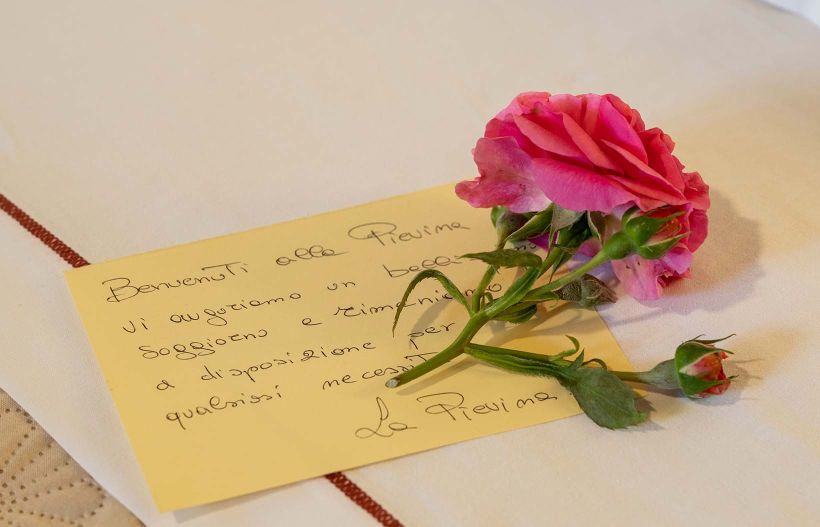 Benvenuti alla Pievina
vi auguriamo un
soggiorno e rimaniamo
a disposizione per
qualsiasi
La Pievina